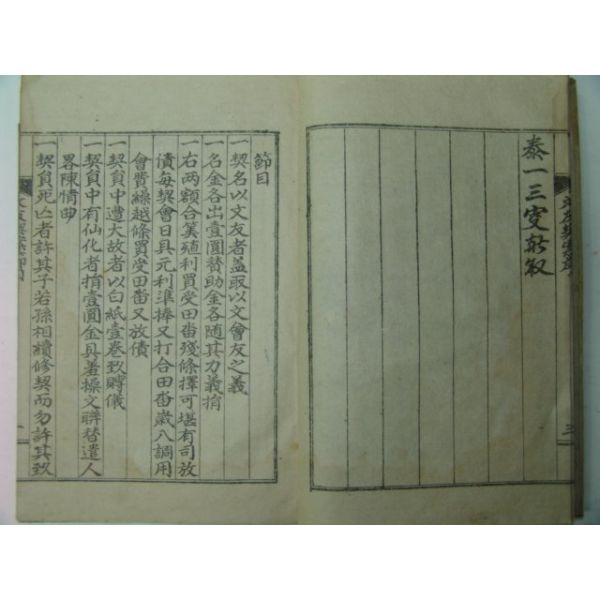 一三
三
節目
一契名以文友者盖取以文會友之義
一名金各出壹圓賛助金各随其力義捐
一右两額合筭殖利買受田畓殘條擇可堪有司放
債每契會日具元利準捧又打合田畓歲入調用
會費繰越條買受田畓又放債
一契員中遭大故者以白紙壹卷致賻儀
一契員中有仙化者捐壹圓金具羞操文聯替遣人
畧陳情曲
一契員死亡者許其子若孫相續修契而勿許其致